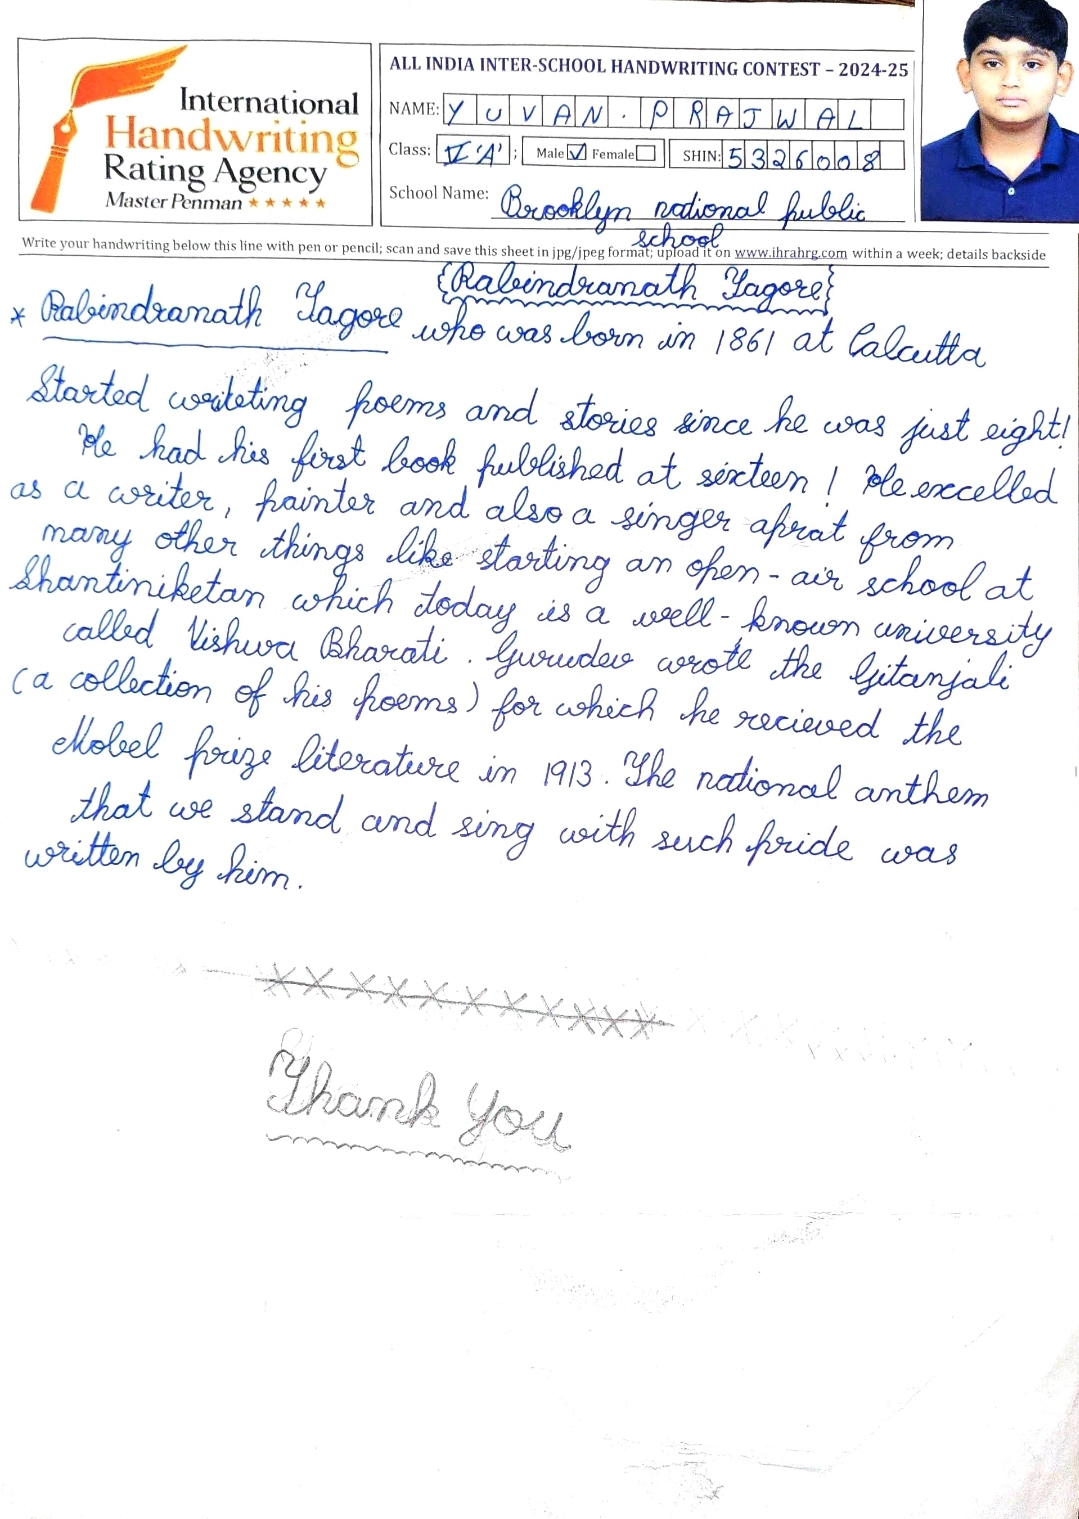 International
Handwriting
Rating Agency
Master Penman ★★★★★
ALL INDIA INTER-SCHOOL HANDWRITING CONTEST – 2024-25
NAME: YUVAN.PRAJWAL
Class: V 'A' ; Male ☑ Female ☐ SHIN: 5326008
School Name: Brooklyn national public
school
Write your handwriting below this line with pen or pencil; scan and save this sheet in jpg/jpeg format; upload it on www.ihrahrg.com within a week; details backside
{Rabindranath Tagore}
* Rabindranath Tagore who was born in 1861 at Calcutta
Started writeting poems and stories since he was just eight!
He had his first book published at sixteen! He excelled
as a writer, painter and also a singer aprat from
many other things like starting an open-air school at
Shantiniketan which today is a well-known university
called Vishwa Bharati. Gurudev wrote the Gitanjali
(a collection of his poems) for which he recieved the
Nobel prize literature in 1913. The national anthem
that we stand and sing with such pride was
written by him.
xxxxxxxxxxx
Thank You